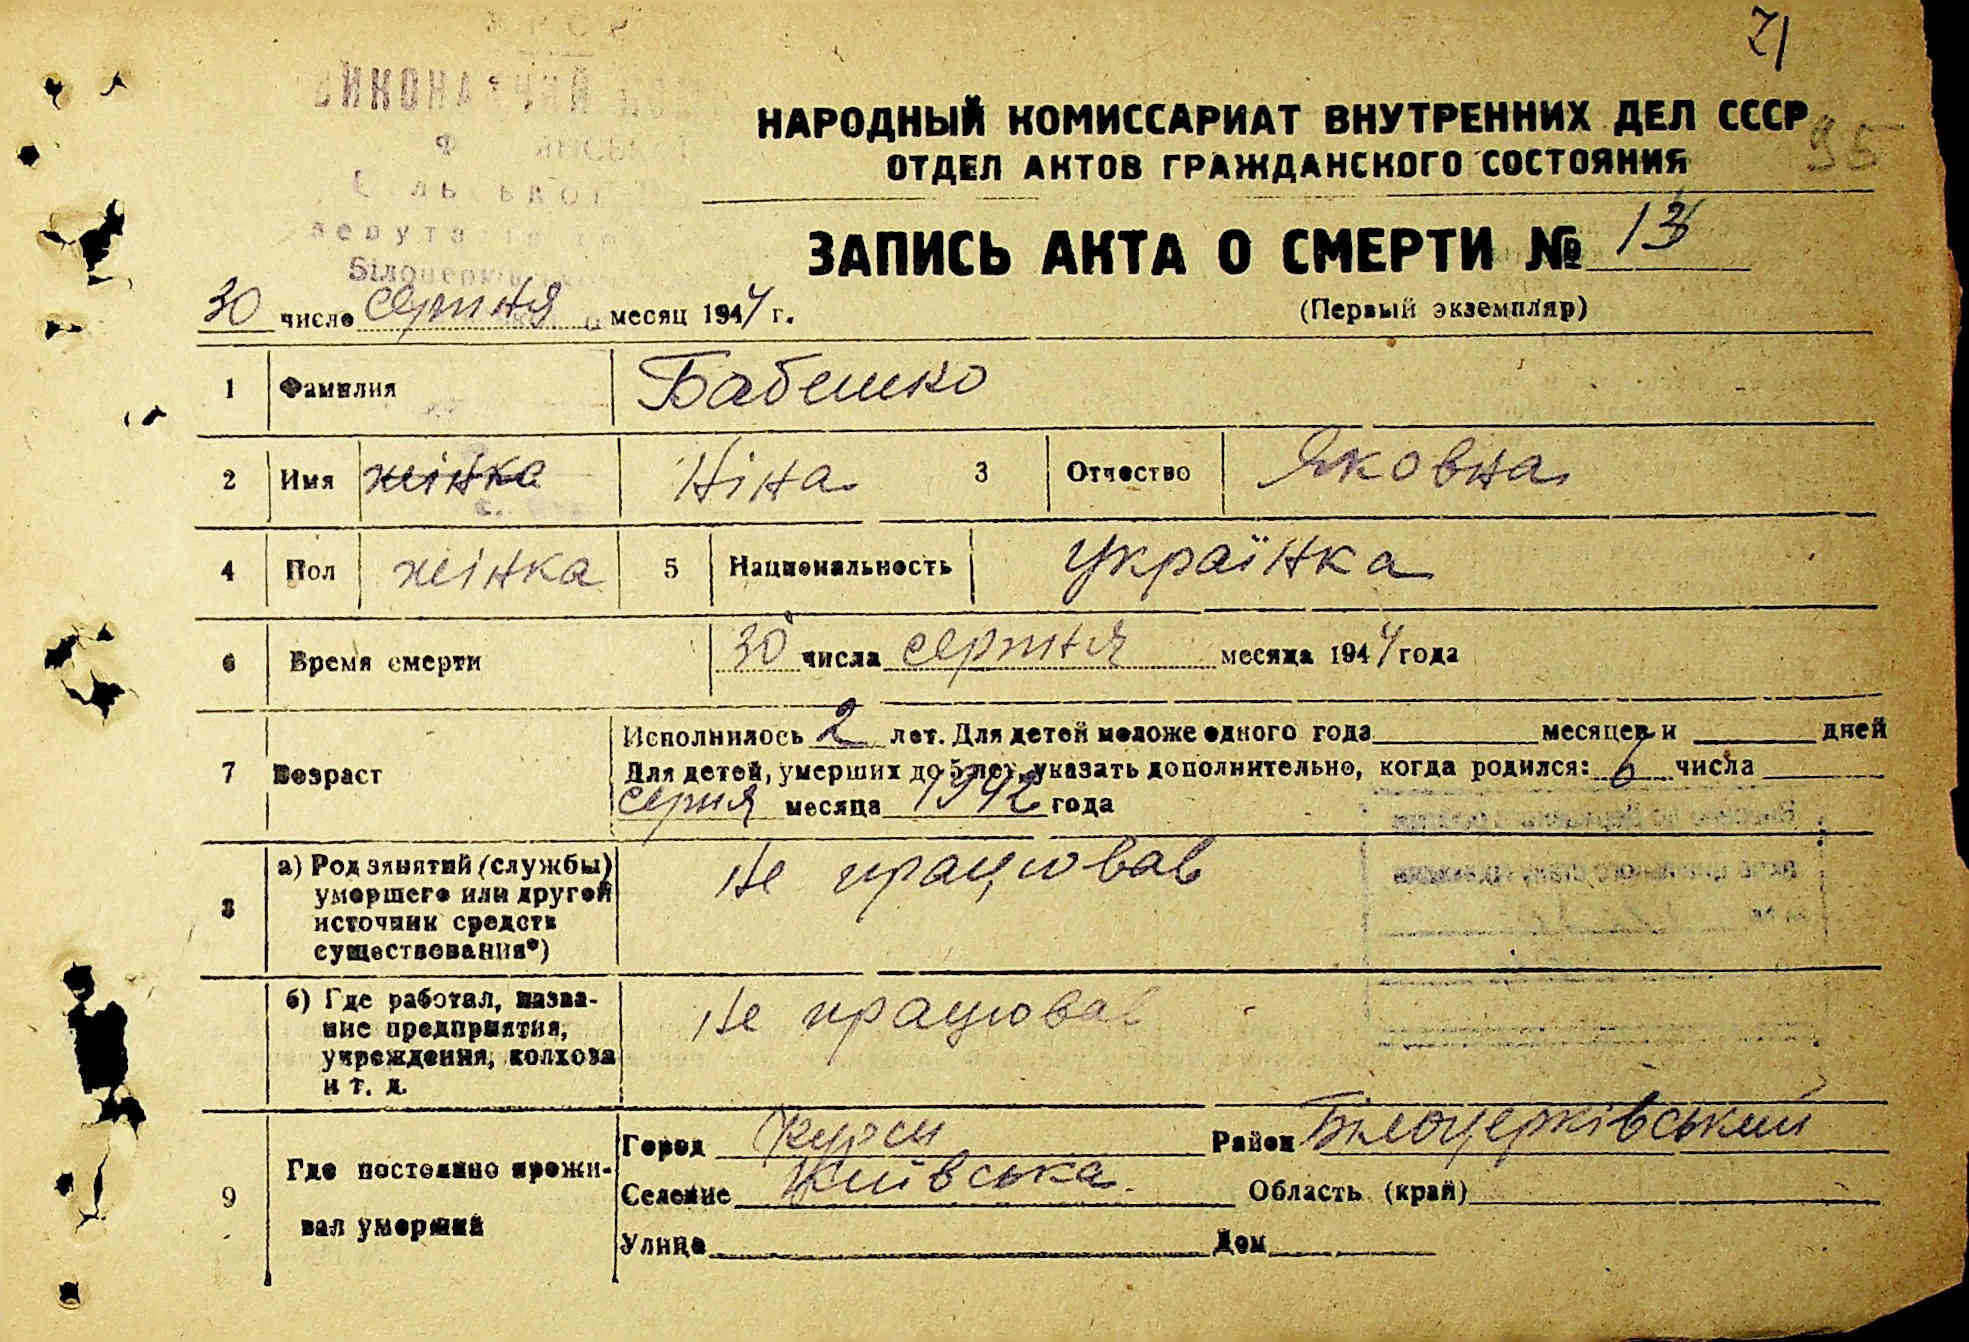 71
НАРОДНЫЙ КОМИССАРИАТ ВНУТРЕННИХ ДЕЛ СССР
95
ОТДЕЛ АКТОВ ГРАЖДАНСКОГО СОСТОЯНИЯ
ЗАПИСЬ АКТА О СМЕРТИ № 13
30 число серпня месяц 1944 г.
(Первый экземпляр)
1 Фамилия Бабешко
2 Имя жінка Ніна 3 Отчество Яковна
4 Пол жінка 5 Национальность українка
6 Время смерти 30 числа серпня месяца 1944 года
7 Возраст
Исполнилось 2 лет. Для детей моложе одного года месяцев и дней
Для детей, умерших до 5 лет, указать дополнительно, когда родился: 6 числа
серпня месяца 1942 года
8 а) Род занятий (службы) умершего или другой источник средств существования*) Не працював
б) Где работал, название предприятия, учреждения, колхоза и т. д. Не працював
9 Где постоянно проживал умерший
Город Район Білоцерківський
Селение Київська Область (край)
Улица Дом